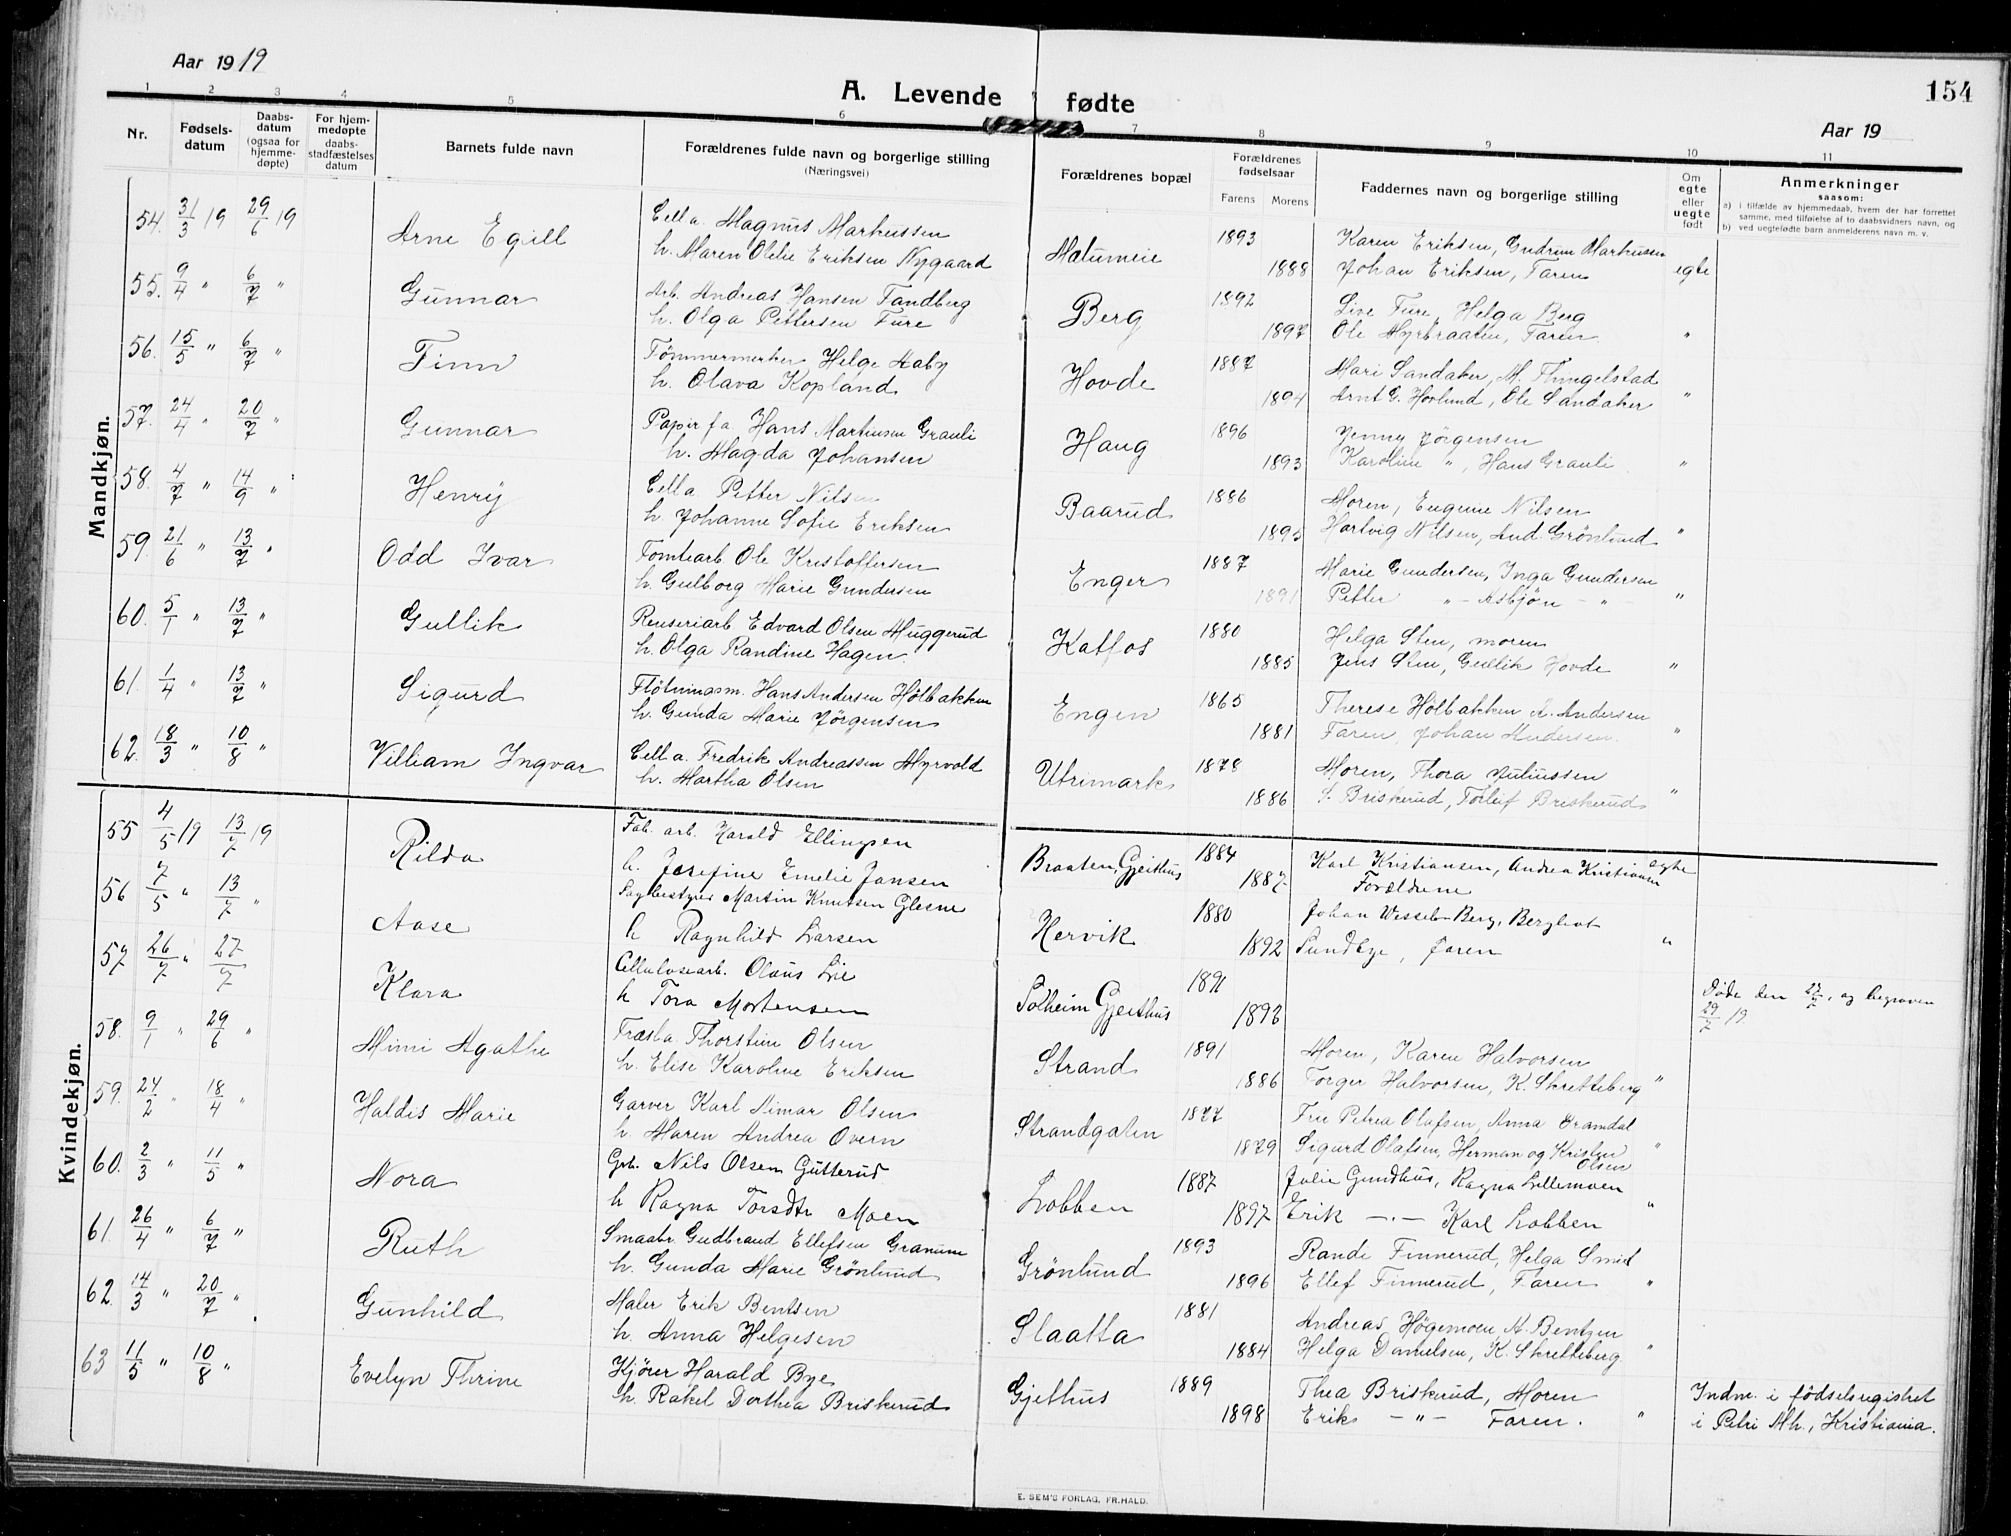 Aar 1919
A. Levende fødte
154
Aar 19
1 2 3 4 5 6 7 8 9 10 11
Nr.
Fødsels-datum
Daabs-datum (ogsaa for hjemme-døpte)
For hjem-medøpte daabs-stadfæstelses datum
Barnets fulde navn
Forældrenes fulde navn og borgerlige stilling
(Næringsvei)
Forældrenes bopæl
Forældrenes fødselsaar
Farens Morens
Faddernes navn og borgerlige stilling
Om egte eller uegte født
Anmerkninger
saasom:
a) i tilfælde av hjemmedaab, hvem der har forrettet samme, med tilføielse af to daabsvidners navn, og
b) ved uegtefødte barn anmelderens navn m. v.
Mandkjøn.
54. 31/3 19 29/6 19 Arne Egill Cell a. Magnus Markussen 1893 Karen Eriksen, Gudrun Markussen
h. Maren Oldie Eriksen Nygaard Malumeie 1888 Johan Eriksen, Faren egte
55. 9/4 " 6/7 " Gunnar Arb. Andreas Hansen Tandberg 1892 Live Fure, Helga Berg
h. Olga Pettersen Fure Berg 1897 Ole Myrbraaten, Faren "
56. 15/5 " 6/7 " Finn Tömmermerker Helge Aaby 1887 Mari Sandaker, M. Thingelstad
h. Olava Kopland Hovde 1894 Arnt G. Hovlund, Ole Sandaker "
57. 24/4 " 20/7 " Gunnar Papirfa. Hans Martinsen Grauli 1896 Jenny Jørgensen
h. Magda Johansen Haug 1893 Karoline ", Hans Grauli "
58. 4/7 " 14/9 " Henry Cell a. Petter Nilsen 1886 Moren, Eugenie Nilsen
h. Johanne Sofie Eriksen Baarud 1895 Hartvig Nilsen, And. Grönlund "
59. 21/6 " 13/7 " Odd Ivar Tomtearb. Ole Kristoffersen 1887 Marie Gundersen, Inga Gundersen
h. Gulborg Marie Gundersen Enger 1891 Petter " - Asbjön - " - "
60. 5/1 " 13/7 " Gullik Renseriarb Edvard Olsen Muggerud 1880 Helga Sten, moren
h. Olga Randine Hagen Katfos 1885 Jens Sten, Gullik Hovde "
61. 1/4 " 13/7 " Sigurd Flötningsm. Hans Andersen Hölbakken 1865 Therese Hölbakken A. Andersen
h. Gunda Marie Jörgensen Engen 1881 Faren, Johan Andersen "
62. 18/3 " 10/8 " Villiam Ingvar Cell a. Fredrik Andreassen Myrvold 1878 Moren, Thora Juliussen
h. Martha Olsen Utrimark 1886 S. Briskerud, Torleif Briskerud "
Kvindekjøn.
55 4/5 19 13/7 19 Rilda Fab. arb. Harald Ellingsen 1884 Karl Kristiansen, Andrea Kristiansen egte
h. Josefine Emelie Jansen Braaten, Gjeithus 1887 Forældrene
56 7/5 " 13/7 " Aase Sagbestyrer Martin Knutsen Glesne 1880 Johan Wessel Berg, Bergliot
h Ragnhild Larsen Hervik 1892 Sundbye, Faren "
57 26/7 " 27/7 Klara Cellulosearb. Olaus Lie 1891 Døde den 27/7, og begraven
h Tora Mortensen Solheim Gjeithus 1893 29/7 19
58. 9/1 " 29/6 " Mimi Agathe Træsla. Thorstein Olsen 1891 Moren, Karen Halvorsen
h. Elise Karoline Eriksen Strand 1886 Torger Halvorsen, K. Skretteberg "
59. 24/2 " 18/4 " Haldis Marie Garver Karl Aimar Olsen 1877 Fru Petrea Olafsen, Anna Gramdal
h. Maren Andrea Overn Strandgaten 1879 Sigurd Olafsen, Herman og Kristen Olsen "
60. 2/3 " 11/5 " Nora Grb. Nils Olsen Gutterud 1887 Julie Gundhus, Ragna Lillemoen
h Ragna Torsdtr Moen Lobben 1897 Erik - " - Karl Lobben "
61. 26/4 " 6/7 " Ruth Smaabr. Gudbrand Ellefsen Granum 1893 Rande Finnerud, Helga Smid
h. Gunda Marie Grönlund Grönlund 1896 Ellef Finnerud, Faren "
62. 14/3 " 20/7 " Gunhild Maler Erik Bentsen 1881 Andreas Högemoen, A. Bentzen
h. Anna Helgesen Slaatta 1884 Helga Danielsen, K. Skretteberg "
63 11/5 " 10/8 " Evelyn Thrine Kjörer Harald Bye 1889 Thea Briskerud, Moren Indm. i födselsregistret
h. Rakel Dorthea Briskerud Gjethus 1898 Erik - " - Faren. " i Petri Mh., Kristiania.
E. SEM'S FORLAG, FR.HALD.